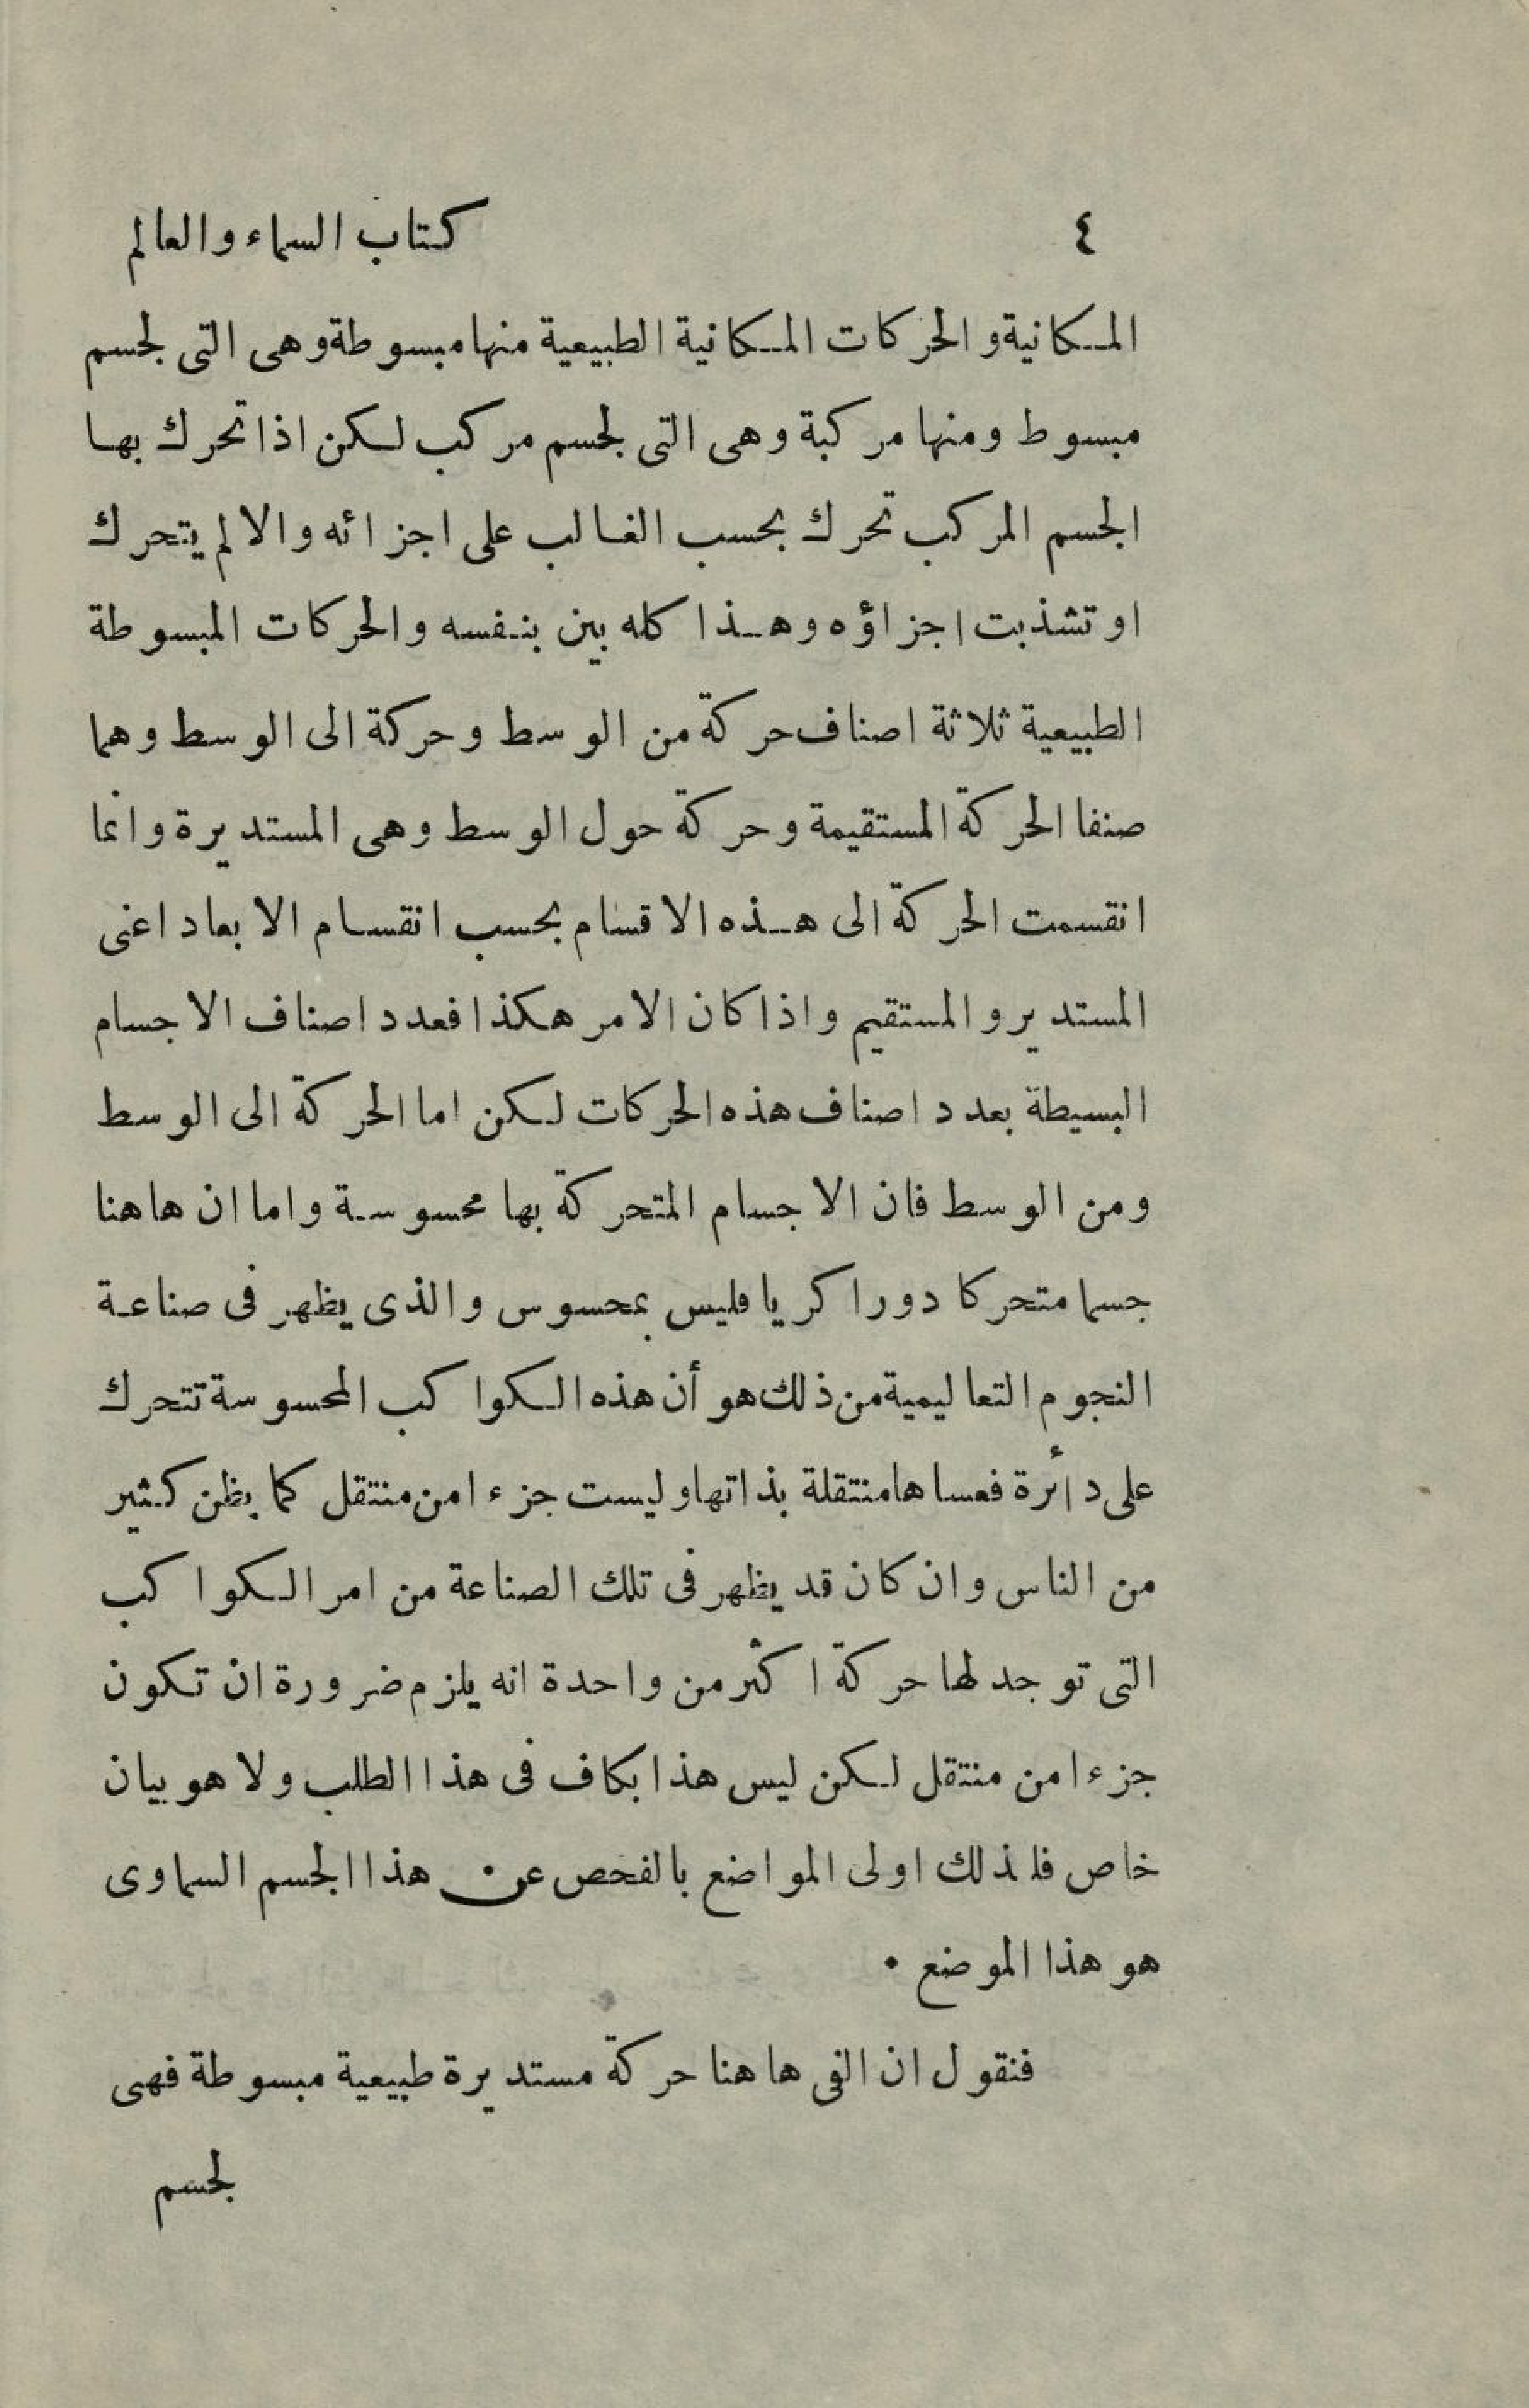 ٤ كتاب السماء والعالم
المكانية والحركات المكانية الطبيعية منها مبسوطة وهى التى لجسم
مبسوط ومنها مركبة وهى التى لجسم مركب لكن اذا تحرك بها
الجسم المركب تحرك بحسب الغالب على اجزائه والا لم يتحرك
او تشذبت اجزاؤه وهذا كله بين بنفسه والحركات المبسوطة
الطبيعية ثلاثة اصناف حركة من الوسط وحركة الى الوسط وهما
صنفا الحركة المستقيمة وحركة حول الوسط وهى المستديرة وانما
انقسمت الحركة الى هذه الاقسام بحسب انقسام الابعاد اعنى
المستدير والمستقيم واذا كان الامر هكذا فعدد اصناف الاجسام
البسيطة بعدد اصناف هذه الحركات لكن اما الحركة الى الوسط
ومن الوسط فان الاجسام المتحركة بها محسوسة واما ان هاهنا
جسما متحركا دورا كريا فليس بمحسوس والذى يظهر فى صناعة
النجوم التعاليمية من ذلك هو أن هذه الكواكب المحسوسة تتحرك
على دائرة فعساها منتقلة بذاتها وليست جزءا من منتقل كما يظن كثير
من الناس وان كان قد يظهر فى تلك الصناعة من امر الكواكب
التى توجد لها حركة اكثر من واحدة انه يلزم ضرورة ان تكون
جزءا من منتقل لكن ليس هذا بكاف فى هذا الطلب ولا هو بيان
خاص فلذلك اولى المواضع بالفحص عن هذا الجسم السماوى
هو هذا الموضع ٠
فنقول ان الفى هاهنا حركة مستديرة طبيعية مبسوطة فهى
لجسم